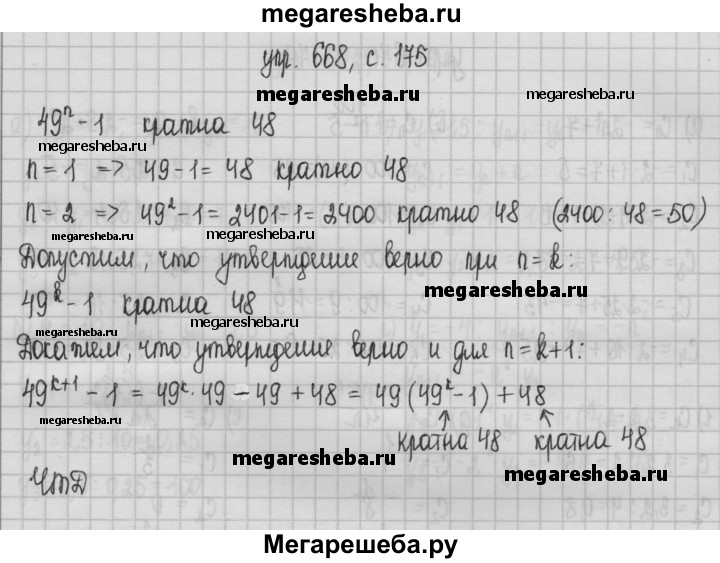 megaresheba.ru
упр. 668, с. 175
megaresheba.ru megaresheba.ru
49ⁿ - 1 кратна 48
megaresheba.ru
n = 1 => 49 - 1 = 48 кратно 48
n = 2 => 49² - 1 = 2401 - 1 = 2400 кратно 48 (2400 : 48 = 50)
megaresheba.ru megaresheba.ru
Допустим, что утверждение верно при n = k:
megaresheba.ru
49ᵏ - 1 кратна 48
megaresheba.ru megaresheba.ru
Докажем, что утверждение верно и для n = k + 1:
49ᵏ⁺¹ - 1 = 49ᵏ · 49 - 49 + 48 = 49 (49ᵏ - 1) + 48
megaresheba.ru
↑ ↖
кратна 48 кратна 48
megaresheba.ru megaresheba.ru
ЧТД
Мегарешеба.ру